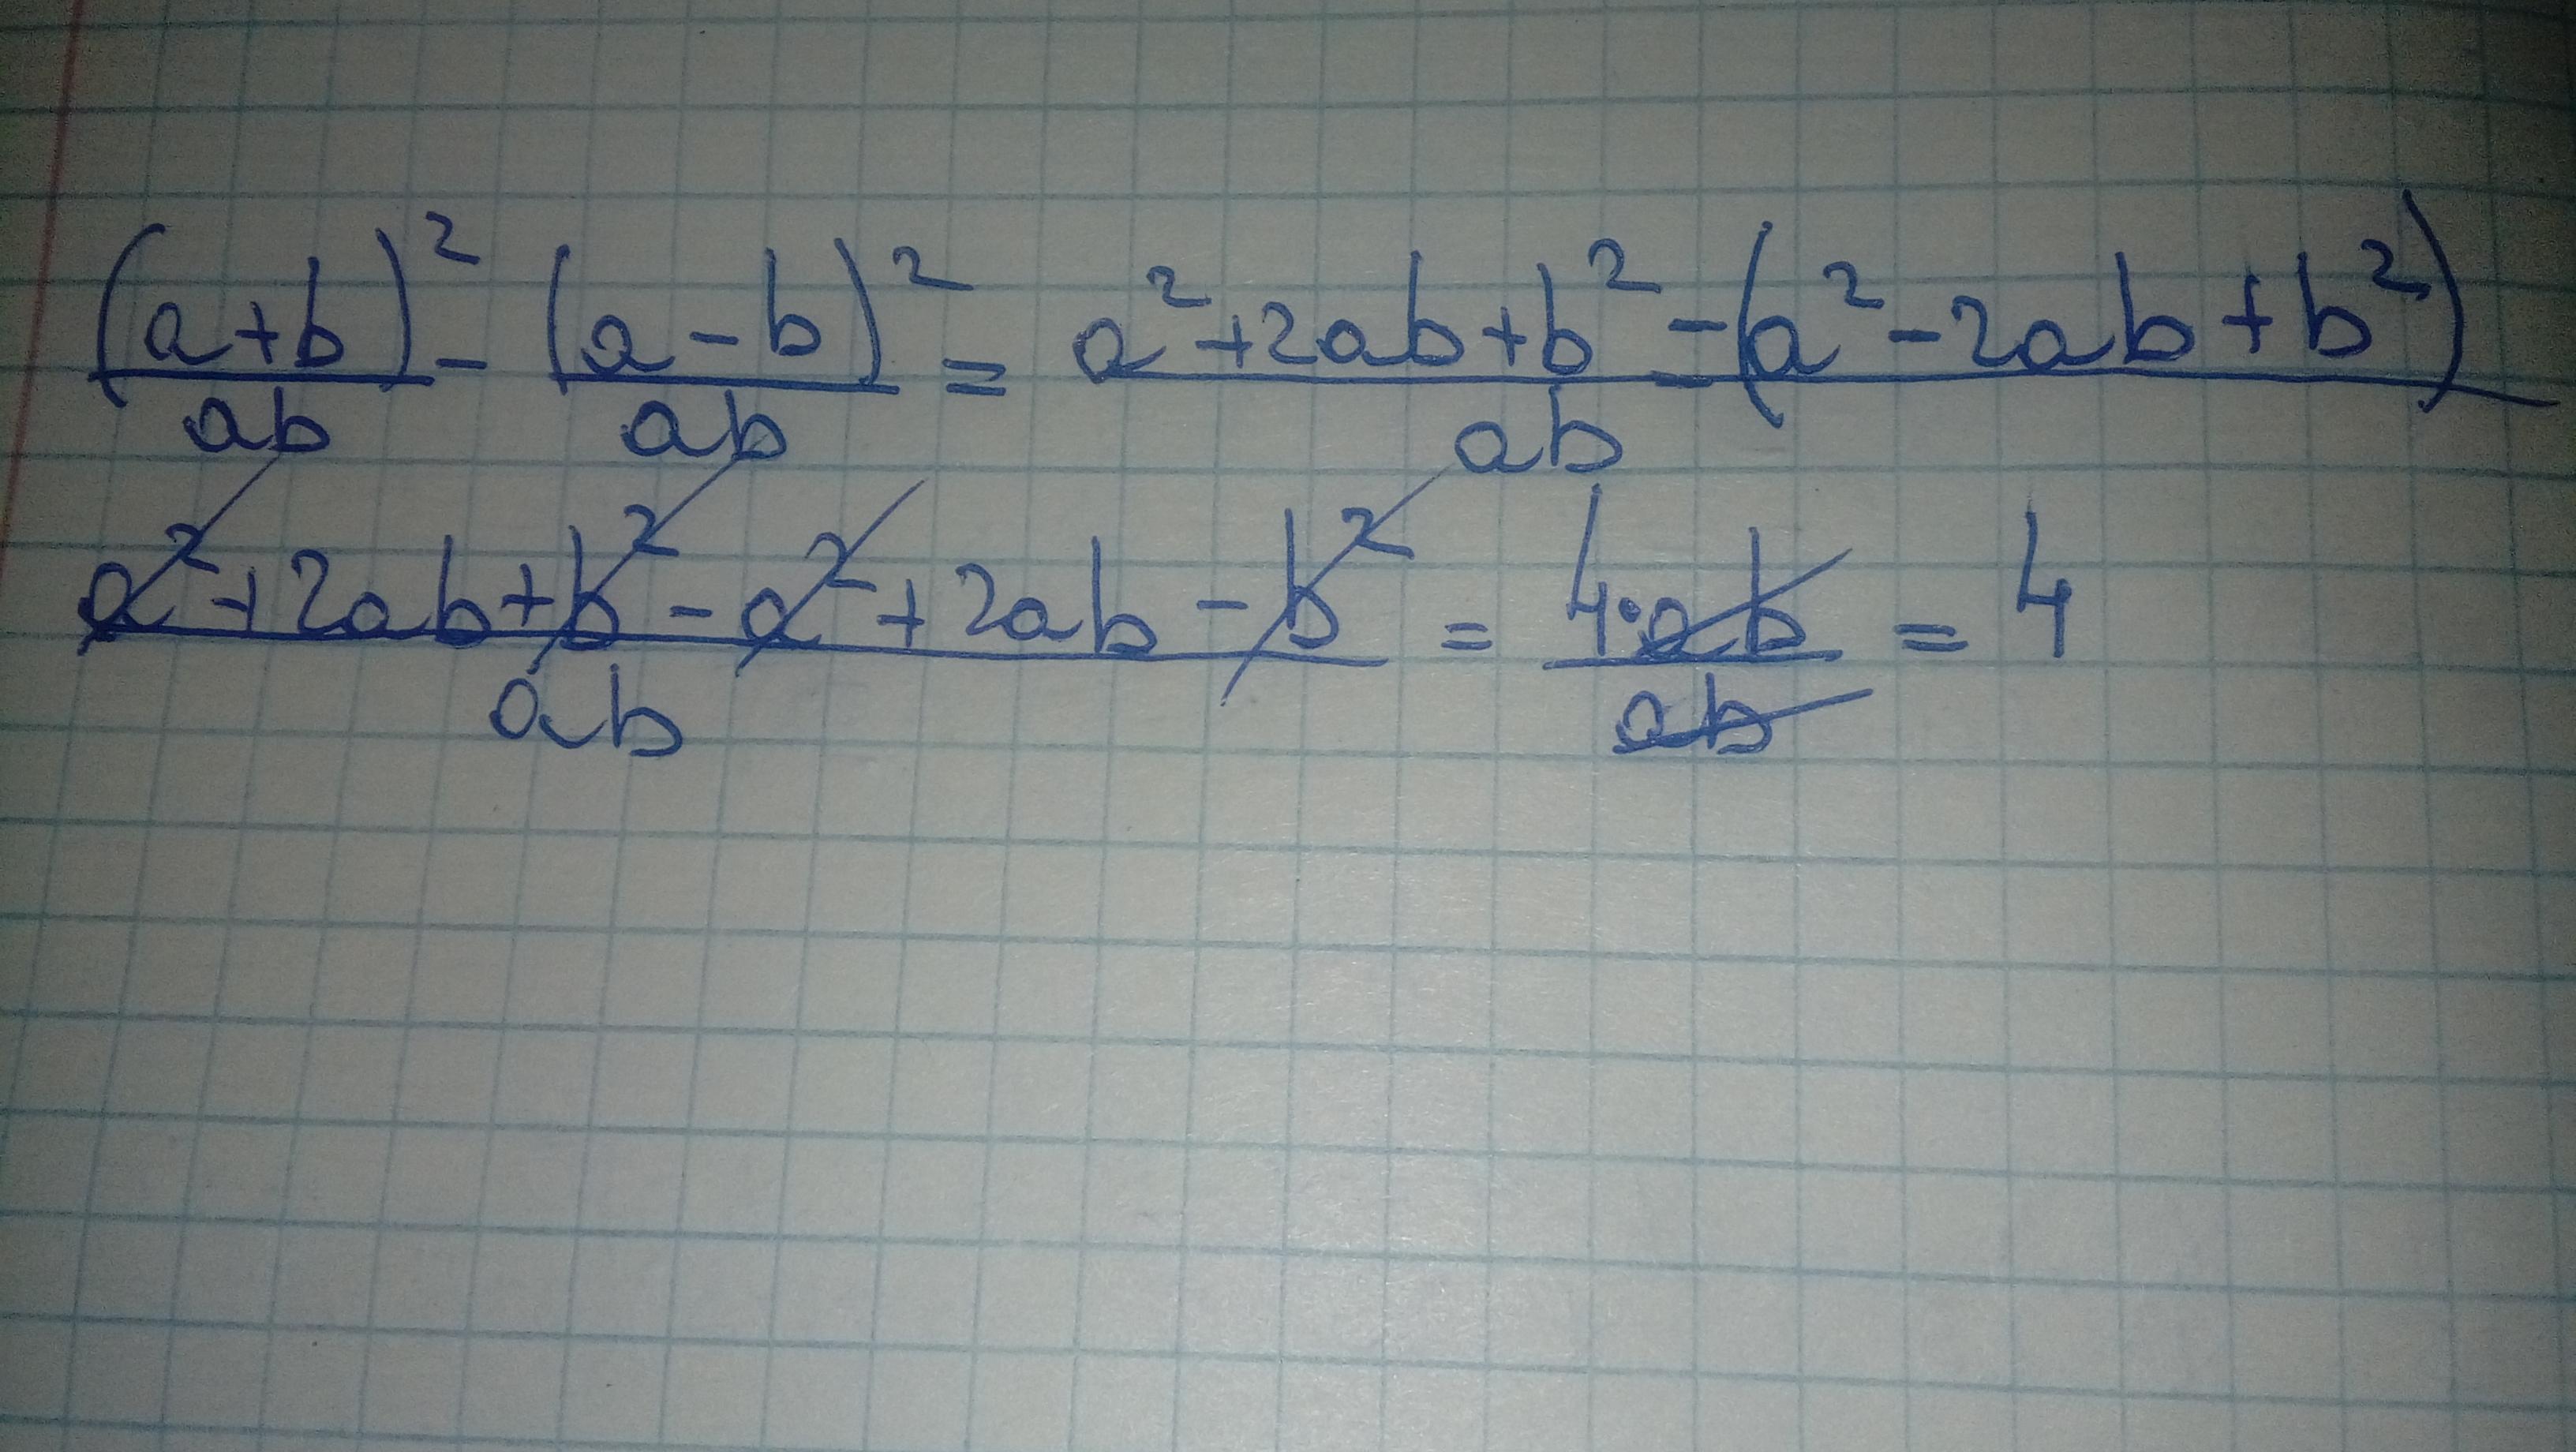 (a+b)²/ab - (a-b)²/ab = a²+2ab+b²-(a²-2ab+b²)/ab
a²+2ab+b²-a²+2ab-b²/ab = 4·ab/ab = 4